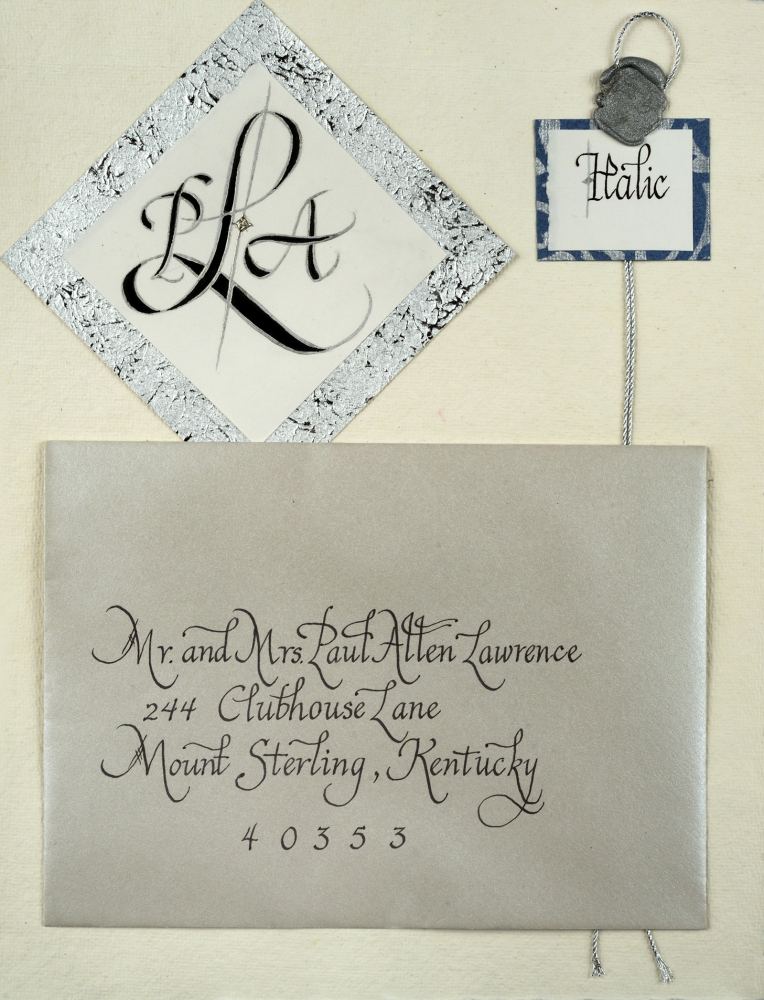 PLA
Italic
Mr. and Mrs. Paul Allen Lawrence
244 Clubhouse Lane
Mount Sterling, Kentucky
40353